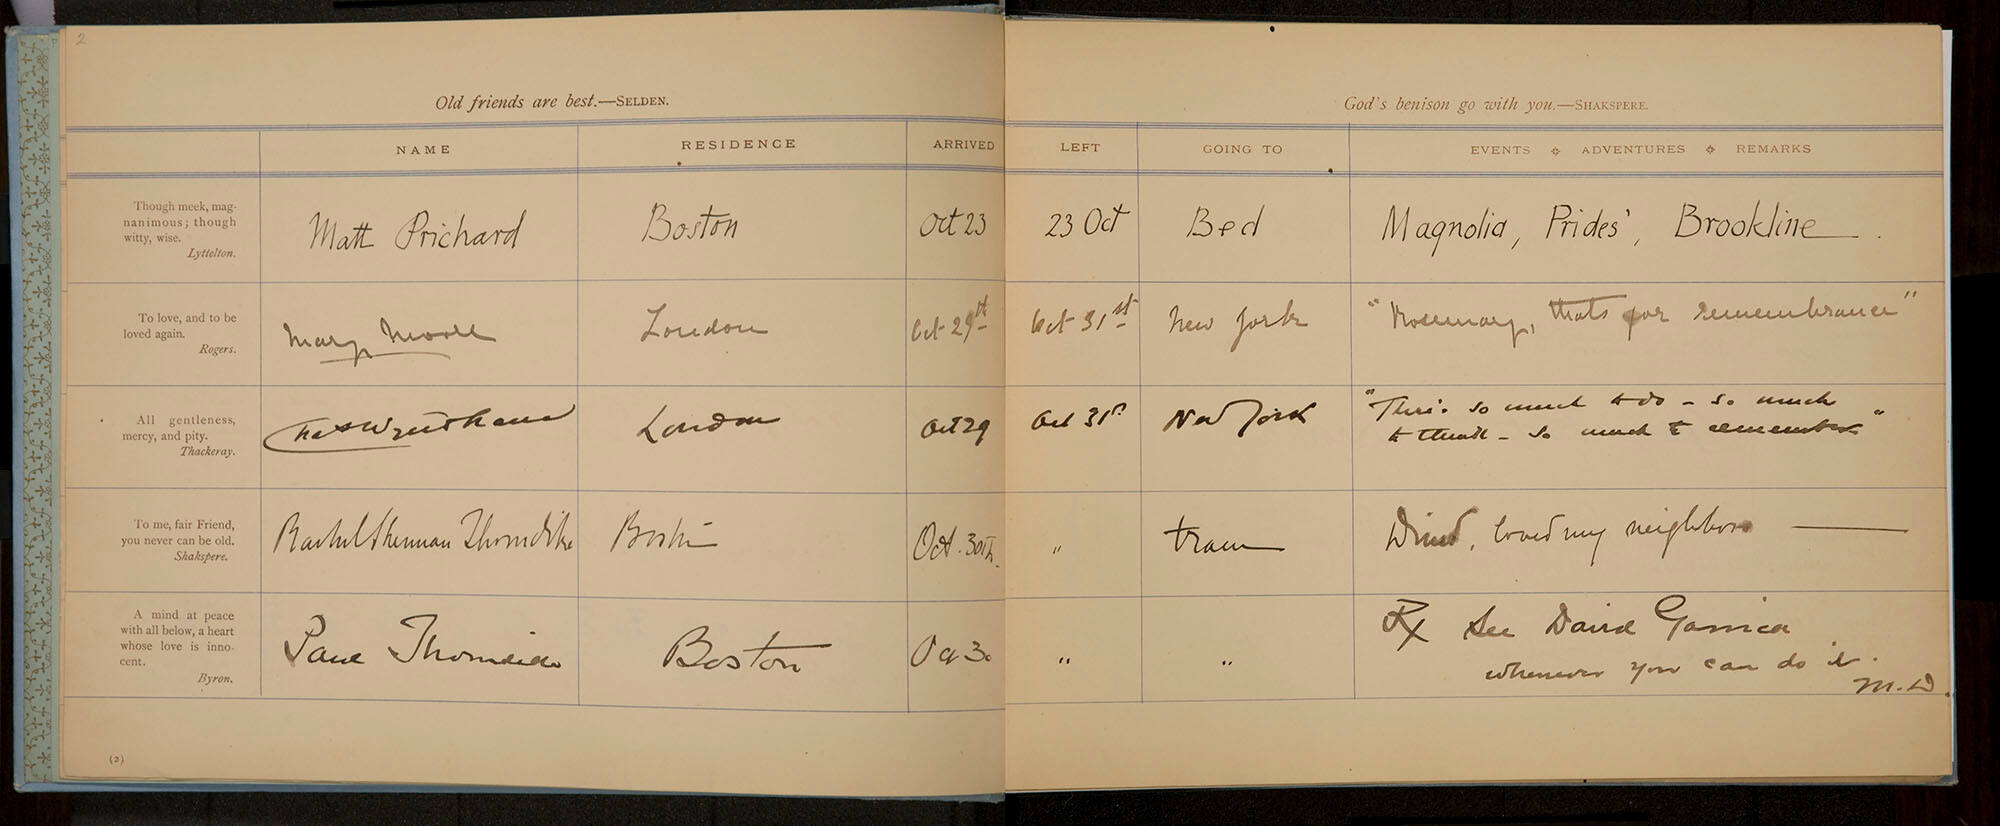 2
Old friends are best.—SELDEN.
God's benison go with you.—SHAKSPERE.
NAME RESIDENCE ARRIVED LEFT GOING TO EVENTS ADVENTURES REMARKS
Though meek, mag-
nanimous; though
witty, wise.
Lyttelton.
Matt Prichard Boston Oct 23 23 Oct Bed Magnolia, Prides', Brookline.
To love, and to be
loved again.
Rogers.
Mary Moore London Oct 29th Oct 31st New York "Rosemary, thats for remembrance"
All gentleness,
mercy, and pity.
Thackeray.
London Oct 29 Oct 31st New York "There's so much to do - so much
to think - so much to remember"
To me, fair Friend,
you never can be old.
Shakspere.
Rachel Sherman Thorndike Boston Oct. 30th " train Dined, loved my neighbor
A mind at peace
with all below, a heart
whose love is inno-
cent.
Byron.
Paul Thorndike Boston Oct 30 " " Rx See David Garrick
whenever you can do it.
M.D.
(2)